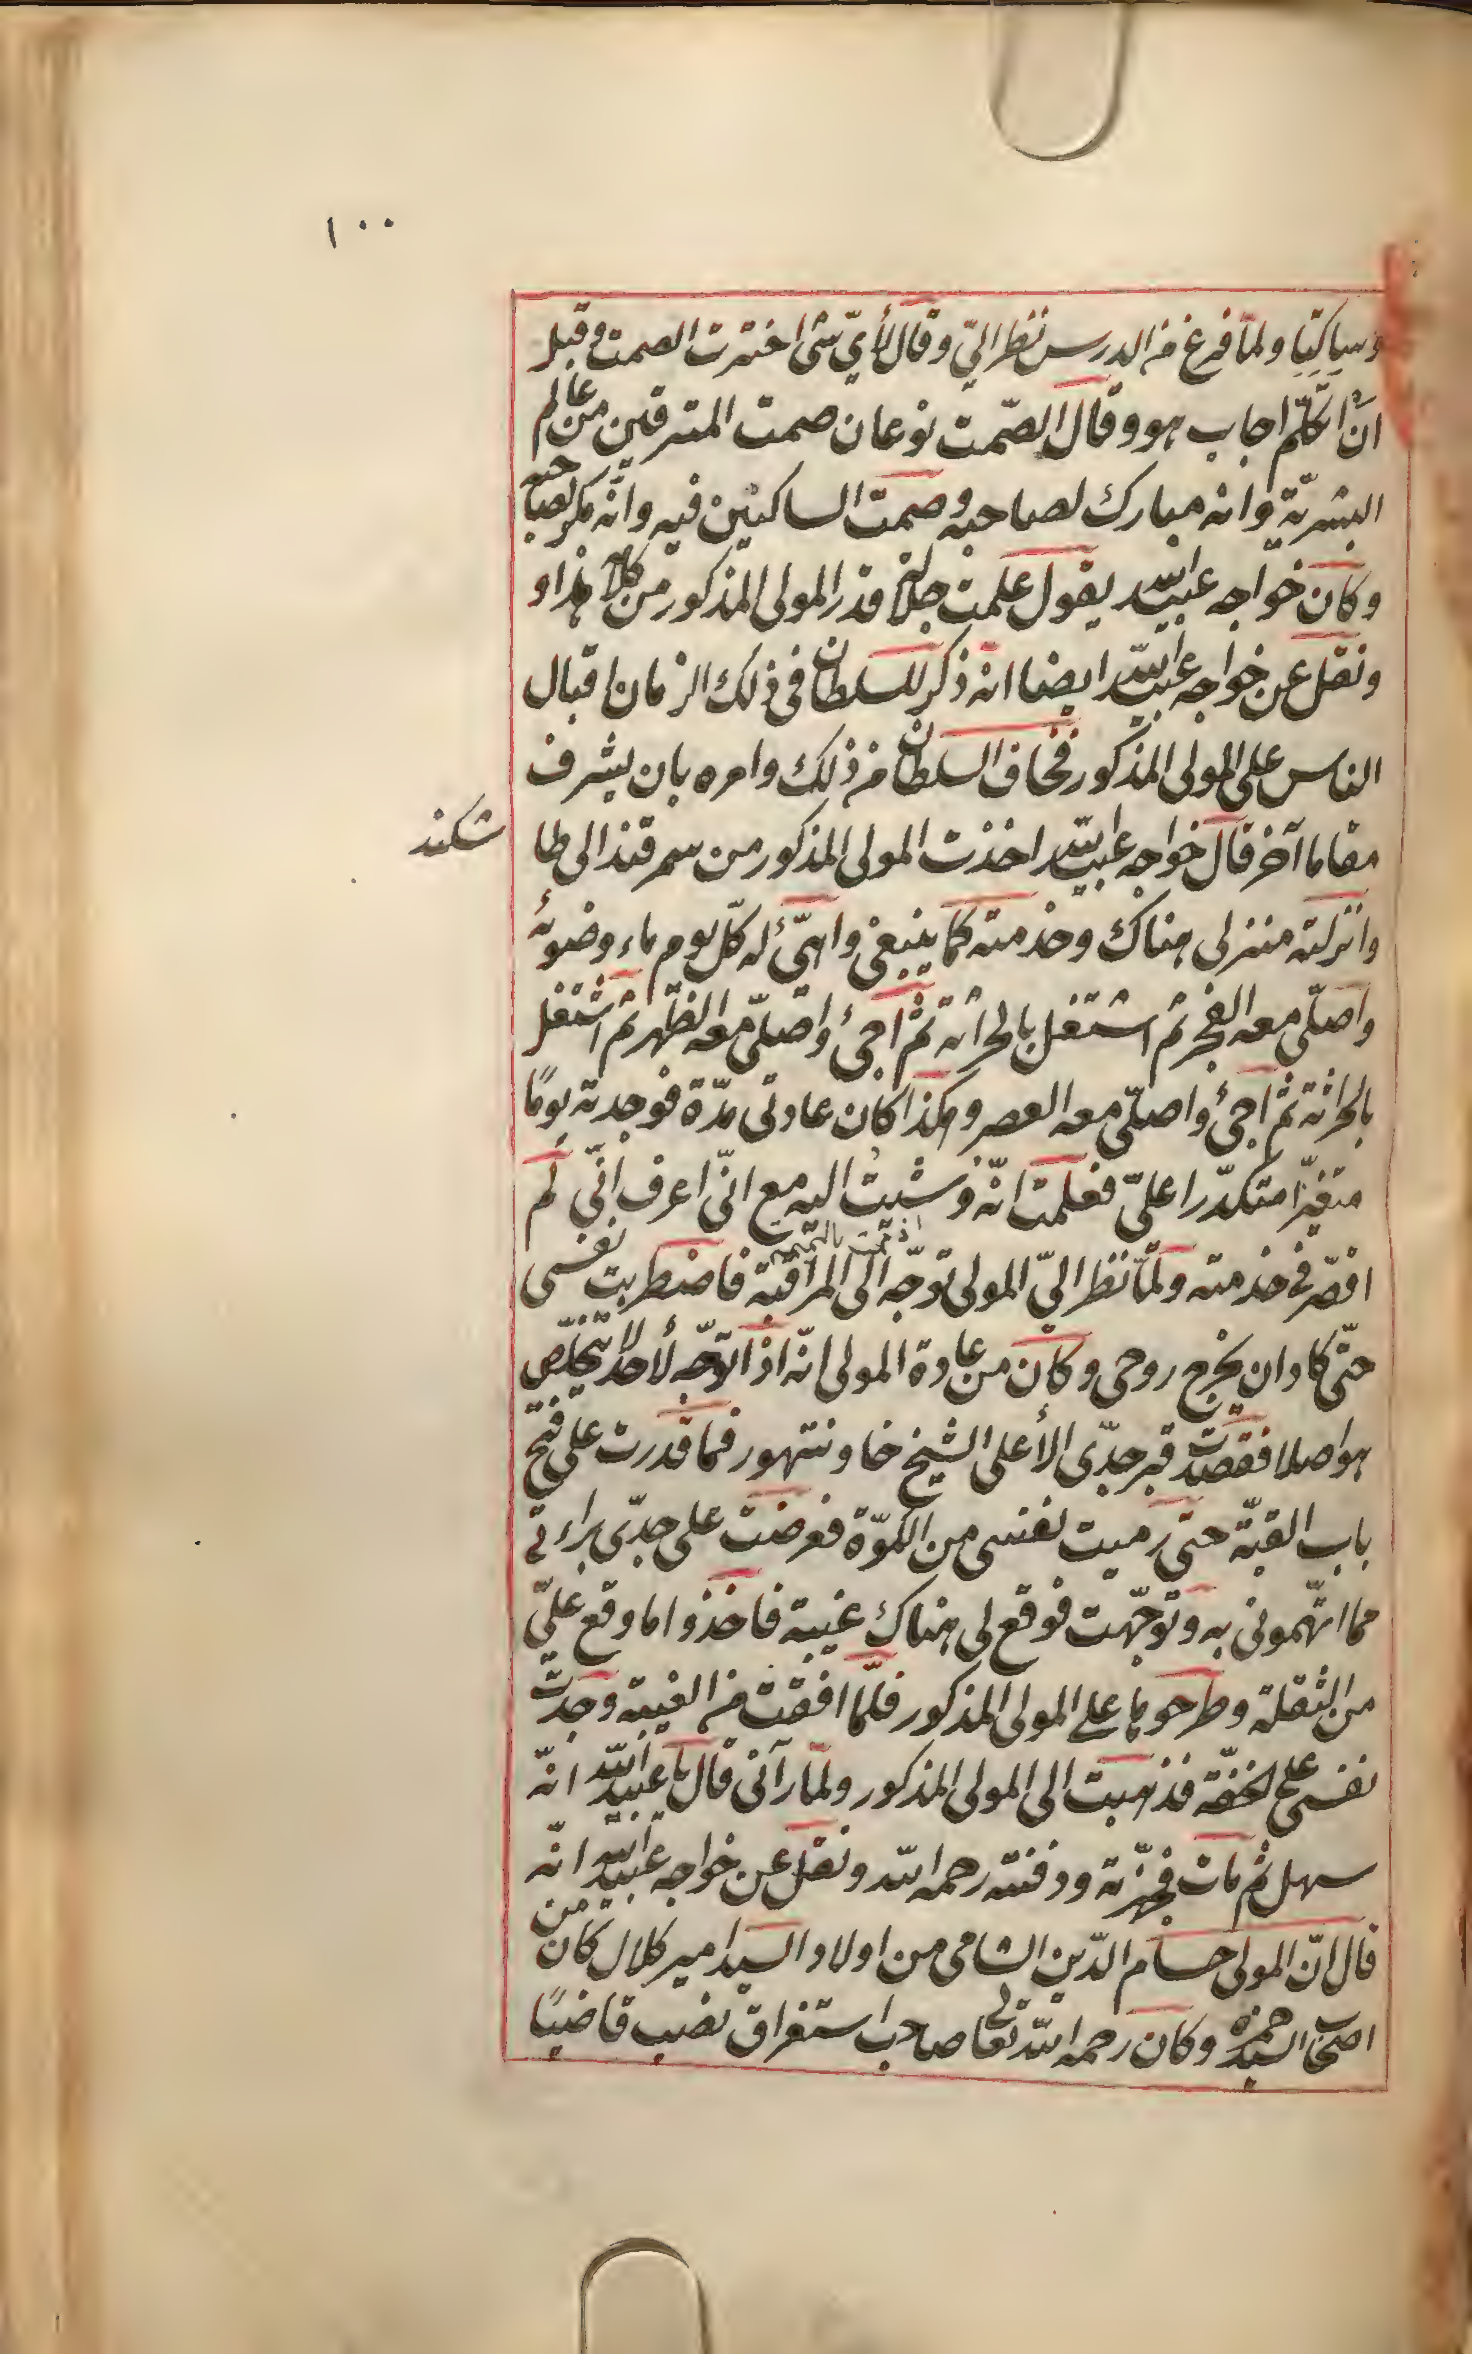 ١٠٠
وساكتا ولما فرغ من الدرس نظر الىّ وقال لأىّ شئ اخترت الصمت وقبل
ان اتكلّم اجاب هو وقال الصّمت نوعان صمت المترقين من عالم
البشريّة وانه مبارك لصاحبه وصمت الساكنين فيه وانّه مكر لصاحبه
وكان خواجه عبيد الله يقول علمت جلالة قدر المولى المذكور من كلامه هذا و
ونقل عن خواجه عبيد الله ايضا انه ذكر للسلطان فى ذلك الزمان اقبال
الناس على المولى المذكور فخاف السلطان من ذلك وامره بان يشرف
مقاما آخر قال خواجه عبيد الله اخذت المولى المذكور من سمرقند الى طا
شكند
وانزلته منزلى هناك وخدمته كما ينبغى واهيّئ له كلّ يوم ماء وضوئه
واصلّى معه الفجر ثم اشتغل بالحراثة ثمّ اجئ واصلّى معه الظهر ثم اشتغل
بالحراثة ثم اجئ واصلّى معه العصر وهكذا كان عادتى مدّة فوجدته يومًا
متغيّرا متكدّرا علىّ فعلمت انّه وشيت اليه مع انّى اعرف انّى لم
اقصّر فى خدمته ولمّا نظر الىّ المولى توجّه الى المراقبة فاضطربت نفسى
حتّى كاد ان يخرج روحى وكان من عادة المولى انّه اذا توجّه لأحد لا يتخلّص
هو اصلا فقصدت قبر جدّى الأعلى الشيخ خاوندتهور فما قدرت على فتح
باب القبّة حتى رميت نفسى من الكوّة فعرضت على جدّى براءتى
مما اتّهمونى به وتوجّهت فوقع لى هناك غيبة فاخذوا ما وقع علىّ
من الثقلة وطرحوها على المولى المذكور فلمّا افقت من الغيبة وجدت
نفسى على الخفّة فذهبت الى المولى المذكور ولمّا رآنى قال يا عبيد الله انّه
سهل ثم مات فجهّزته ودفنته رحمه الله ونقل عن خواجه عبيد الله انّه
قال انّ المولى حسام الدّين الشامى من اولاد السيد امير كلال كان من
اصحاب السيد حمزه وكان رحمه الله تعالى صاحب استغراق نصب قاضيًا